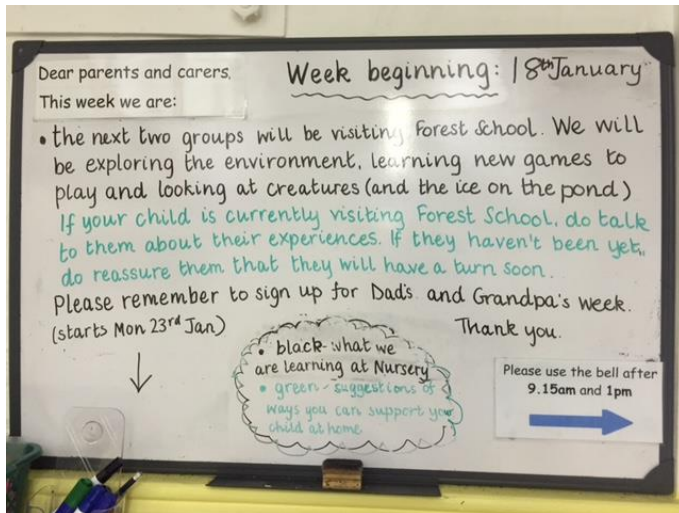 Dear parents and carers,
This week we are:
Week beginning: 18th January
• the next two groups will be visiting Forest School. We will
be exploring the environment, learning new games to
play and looking at creatures (and the ice on the pond)
If your child is currently visiting Forest School, do talk
to them about their experiences. If they haven't been yet,
do reassure them that they will have a turn soon.
Please remember to sign up for Dad's and Grandpa's week.
(starts Mon 23rd Jan)
Thank you.
• black - what we
are learning at Nursery
• green - suggestions of
ways you can support your
child at home
Please use the bell after
9.15am and 1pm